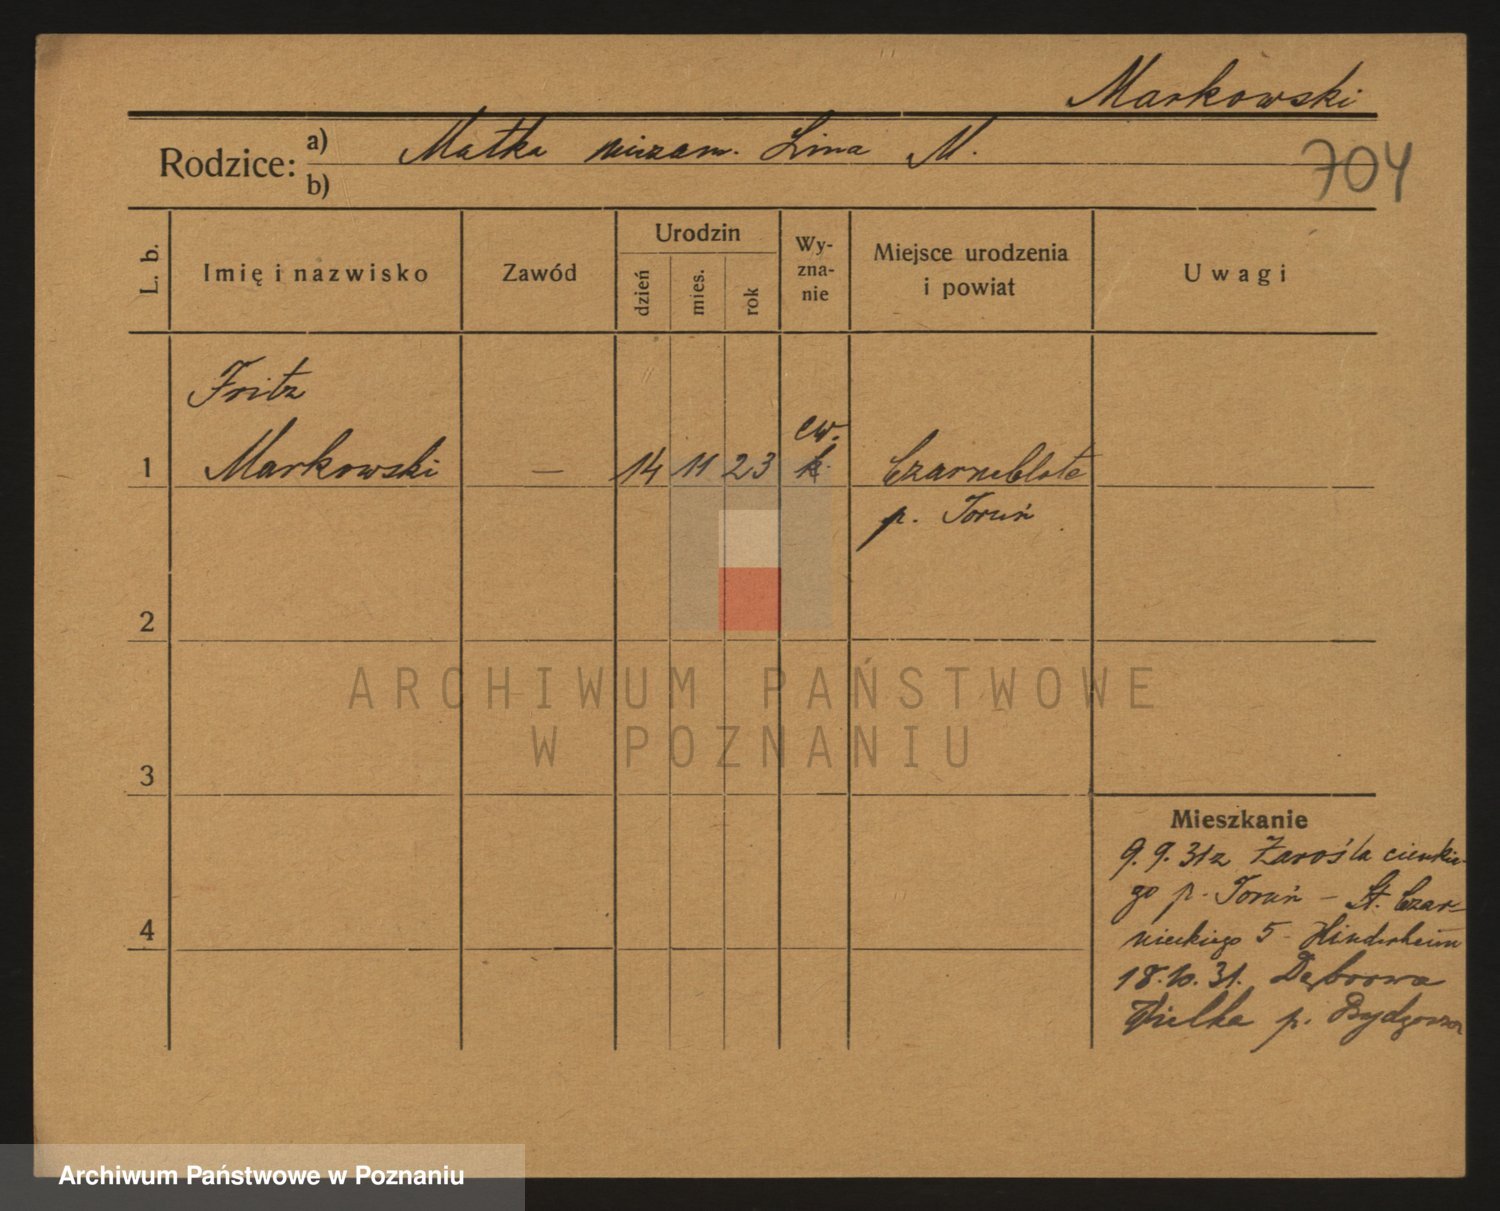 Markowski
Rodzice: a) Matka niezam. Lina M.
b)
704
L. b.
Imię i nazwisko
Zawód
Urodzin
dzień
mies.
rok
Wy-
zna-
nie
Miejsce urodzenia
i powiat
Uwagi
Fritz
ew.
1 Markowski — 14 11 23 k. Czarnebłoto
p. Toruń
2
ARCHIWUM PAŃSTWOWE
W POZNANIU
3
Mieszkanie
9.9.31 z Zarośla cienkie-
go p. Toruń – St. Czar-
4
nieckiego 5 - Kinderheim
18.10.31. Dąbrowa
Wielka p. Bydgoszcz
Archiwum Państwowe w Poznaniu